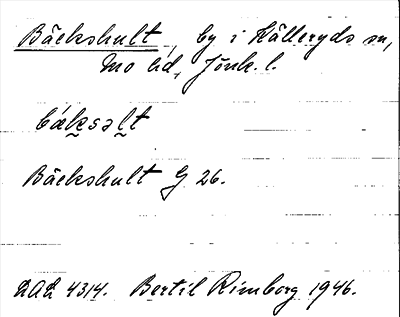 Bäckshult, by i Källeryds sn,
Mo hd, Jönk. l.
báksəlt
Bäckshult G 26.
LAL 4314. Bertil Rimborg 1946.